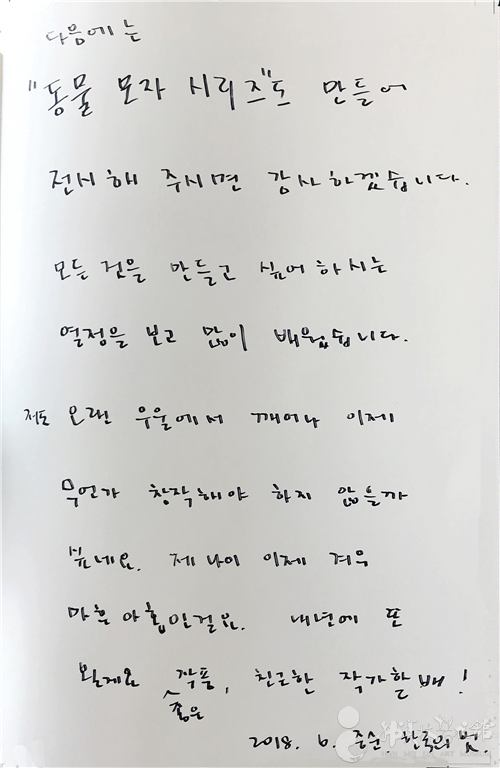 다음에는
"동물 모자 시리즈"도 만들어
전시해 주시면 감사하겠습니다.
모든 것을 만들고 싶어하시는
열정을 보고 많이 배웠습니다.
저도 오랜 우울에서 깨어나 이제
무언가 창작해야 하지 않을까
싶네요. 제 나이 이제 겨우
마흔 아홉인걸요. 내년에 또
올게요 좋은 작품, 친근한 작가할배!
2018. 6. 중순. 한국의 벗.